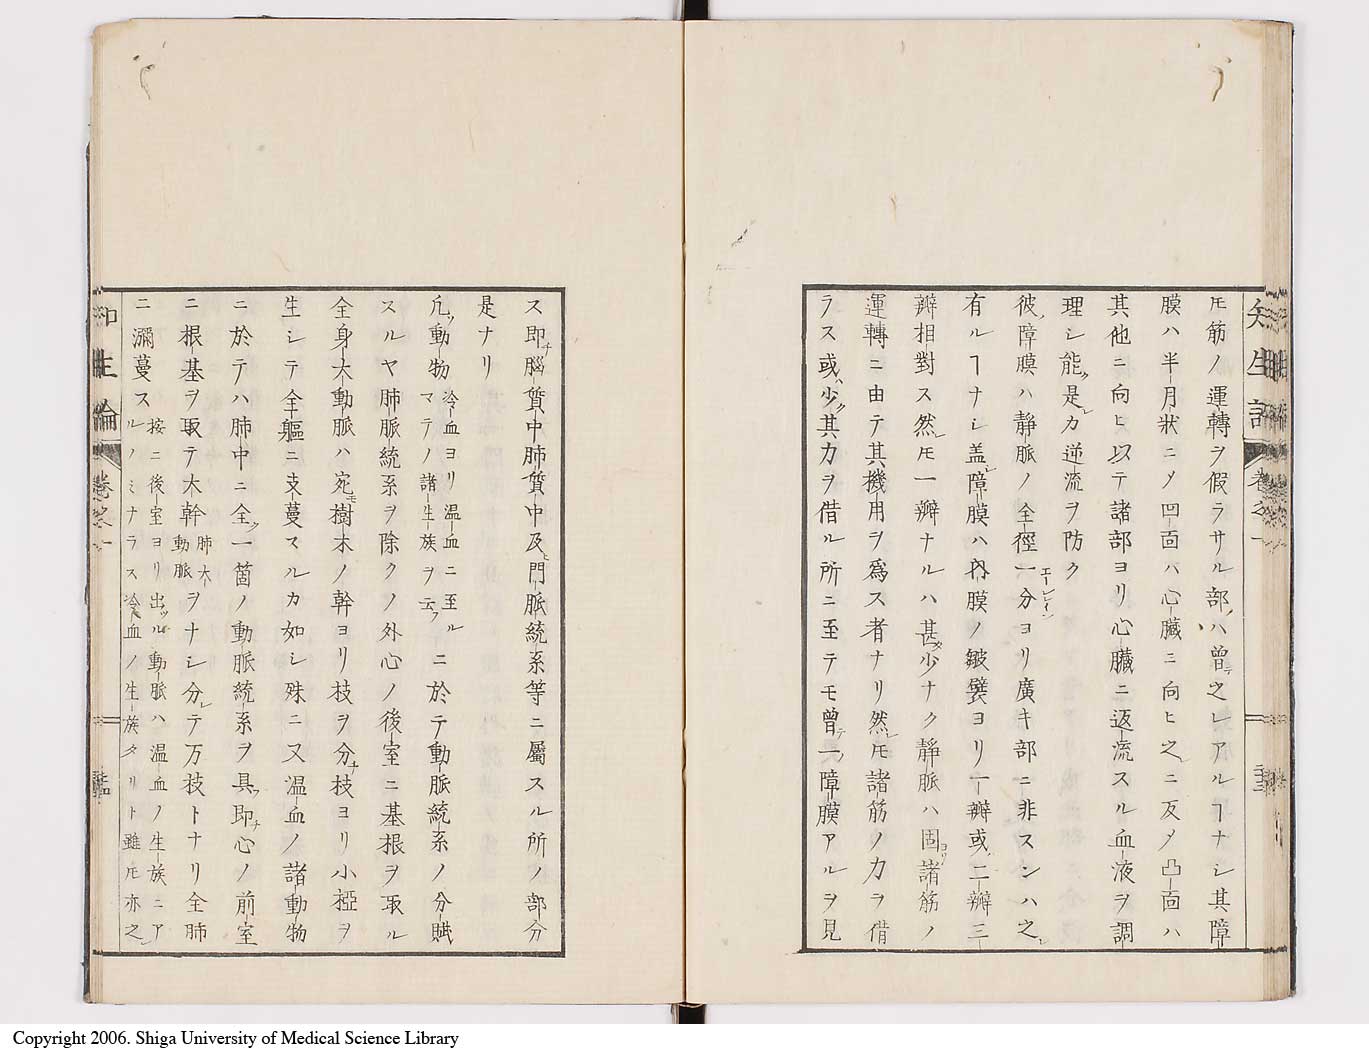 知生論
巻之一
𪜈筋ノ運轉ヲ假ラサル部ハ曽テ之レアルヿナシ其障
膜ハ半月狀ニ〆凹面ハ心臓ニ向ヒ之レニ反〆凸面ハ
其他ニ向ヒ以テ諸部ヨリ心臓ニ返流スル血液ヲ調
理シ能ク是レカ逆流ヲ防ク
彼ノ障膜ハ靜脈ノ全徑一分エーレインヨリ廣キ部ニ非スンハ之レ
有ルヿナシ盖シ障膜ハ內膜ノ皺襞ヨリ一瓣或ハ二瓣三
瓣相對ス然レ𪜈一瓣ナルハ甚タ少ナク靜脈ハ固ヨリ諸筋ノ
運轉ニ由テ其機用ヲ爲ス者ナリ然レ𪜈諸筋ノ力ヲ借
ラス或ハ少ク其力ヲ借ル所ニ至テモ曽テ一ツノ障膜アルヲ見
ス即チ腦質中肺質中及ヒ門脈統系等ニ屬スル所ノ部分
是ナリ
凢ソ動物冷血ヨリ温血ニ至ルマテノ諸生族ヲ云フニ於テ動脈統系ノ分賦
スルヤ肺脈統系ヲ除クノ外心ノ後室ニ基根ヲ取ル
全身大動脈ハ宛モ樹木ノ幹ヨリ枝ヲ分チ枝ヨリ小椏ヲ
生シテ全軀ニ支蔓スルカ如シ殊ニ又温血ノ諸動物
ニ於テハ肺中ニ全ク一箇ノ動脈統系ヲ具フ即チ心ノ前室
ニ根基ヲ取テ大幹肺大動脈ヲナシ分レテ万枝トナリ全肺
ニ瀰蔓ス按ニ後室ヨリ出ツル動脈ハ温血ノ生族ニアルノミナラス冷血ノ生族タリト雖𪜈亦之レ
知生論
巻之一